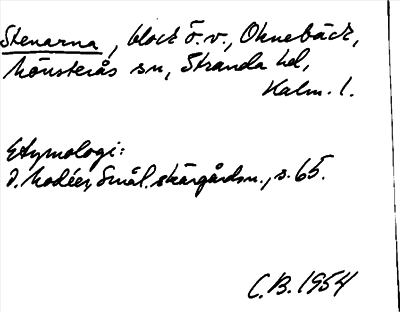 Stenarna, block ö.v., Oknebäck,
Mönsterås sn, Stranda hd,
Kalm. l.
Etymologi:
I. Modéer, Smål. skärgårdsn., s. 65.
C.B. 1954